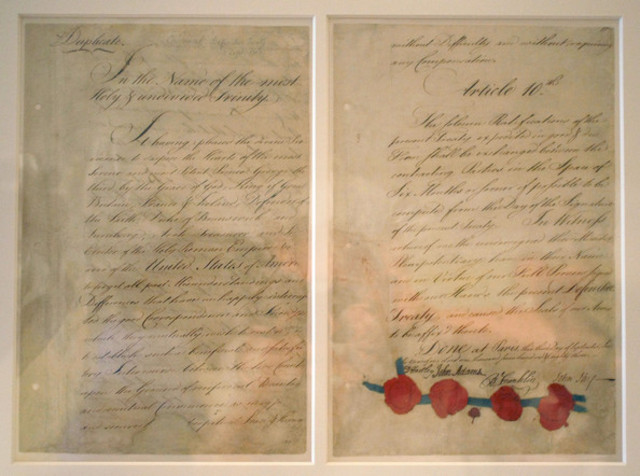 Duplicate.
In the Name of the most
Holy & undivided Trinity.
It having pleased the divine Pro
vidence to dispose the Hearts of the most
Serene and most Potent Prince George the
third, by the Grace of God, King of Great
Britain, France & Ireland, Defender of
the Faith, Duke of Brunswick and
Lunebourg, Arch Treasurer, and
Elector of the Holy Roman Empire &
of the United States of America
to forget all past Misunderstandings and
Differences that have unhappily interrup
ted the good Correspondence and
which they mutually wish to restore
to establish such a beneficial and satisfac
tory Intercourse between the two
upon the Ground of reciprocal Advantages
and mutual Convenience as may
and secure Perpetual Peace & Harmony
without Difficulty and without requiring
any Compensation.
Article 10th.
The solemn Ratifications of the
present Treaty expedited in good & due
Form shall be exchanged between the
contracting Parties in the Space of
Six Months or sooner if possible to be
computed from the Day of the Signature
of the present Treaty. In Witness
whereof we the undersigned their Ministers
Plenipotentiary have in their Name
and in Virtue of our Full Powers signed
with our Hands the present Definitive
Treaty, and caused the Seals of our Arms
to be affix'd thereto.
Done at Paris this third Day of September
in the Year of our Lord one thousand seven hundred & eighty three.
D Hartley John Adams B Franklin John Jay